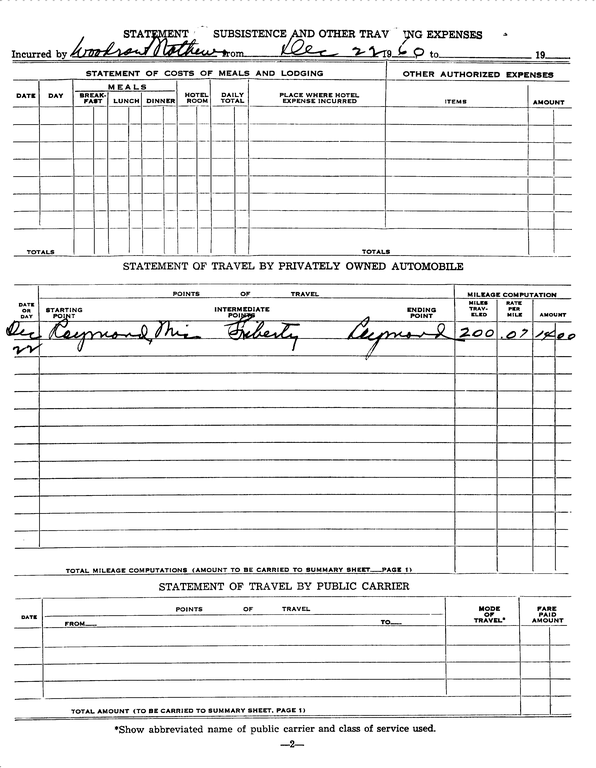 STATEMENT SUBSISTENCE AND OTHER TRAV ING EXPENSES
Incurred by Woodrow Mathews from Dec 22 1960 to 19
STATEMENT OF COSTS OF MEALS AND LODGING OTHER AUTHORIZED EXPENSES
DATE DAY MEALS BREAK-FAST LUNCH DINNER HOTEL ROOM DAILY TOTAL PLACE WHERE HOTEL EXPENSE INCURRED ITEMS AMOUNT
TOTALS TOTALS
STATEMENT OF TRAVEL BY PRIVATELY OWNED AUTOMOBILE
POINTS OF TRAVEL MILEAGE COMPUTATION
DATE OR DAY STARTING POINT INTERMEDIATE POINTS ENDING POINT MILES TRAV-ELED RATE PER MILE AMOUNT
Dec 22 Raymond, Mis Liberty Raymond 200 .07 14 00
TOTAL MILEAGE COMPUTATIONS (AMOUNT TO BE CARRIED TO SUMMARY SHEET PAGE 1)
STATEMENT OF TRAVEL BY PUBLIC CARRIER
DATE POINTS OF TRAVEL MODE OF TRAVEL* FARE PAID AMOUNT
FROM TO
TOTAL AMOUNT (TO BE CARRIED TO SUMMARY SHEET, PAGE 1)
*Show abbreviated name of public carrier and class of service used.
—2—